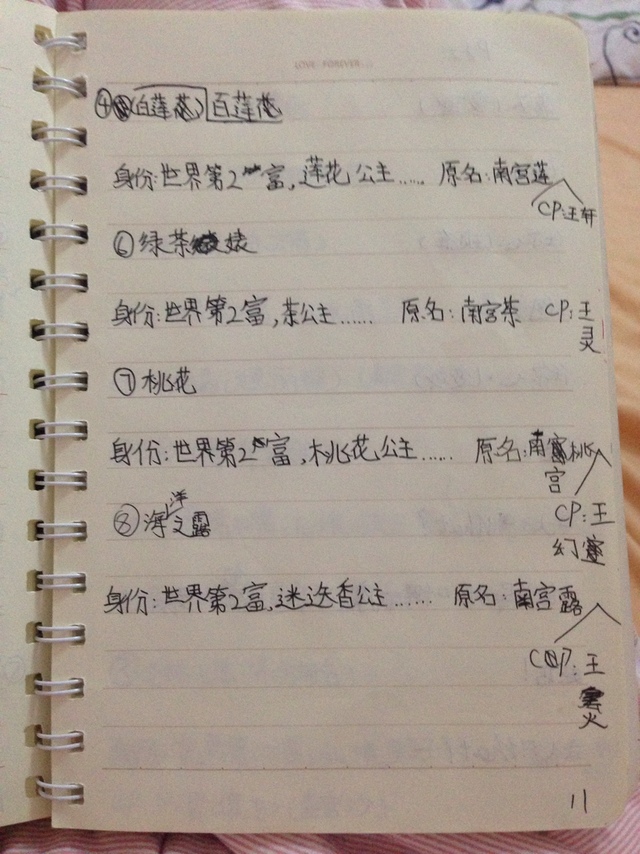 LOVE FOREVER...
④(白莲花)百莲花
身份:世界第2富,莲花公主…… 原名:南宫莲
CP:王轩
⑥绿茶婊
身份:世界第2富,茶公主…… 原名:南宫茶 CP:王
灵
⑦桃花
身份:世界第2富,桃花公主…… 原名:南宫桃
CP:王
幻
⑧海洋之露
身份:世界第2富,迷迭香公主…… 原名:南宫露
CP:王
火
11